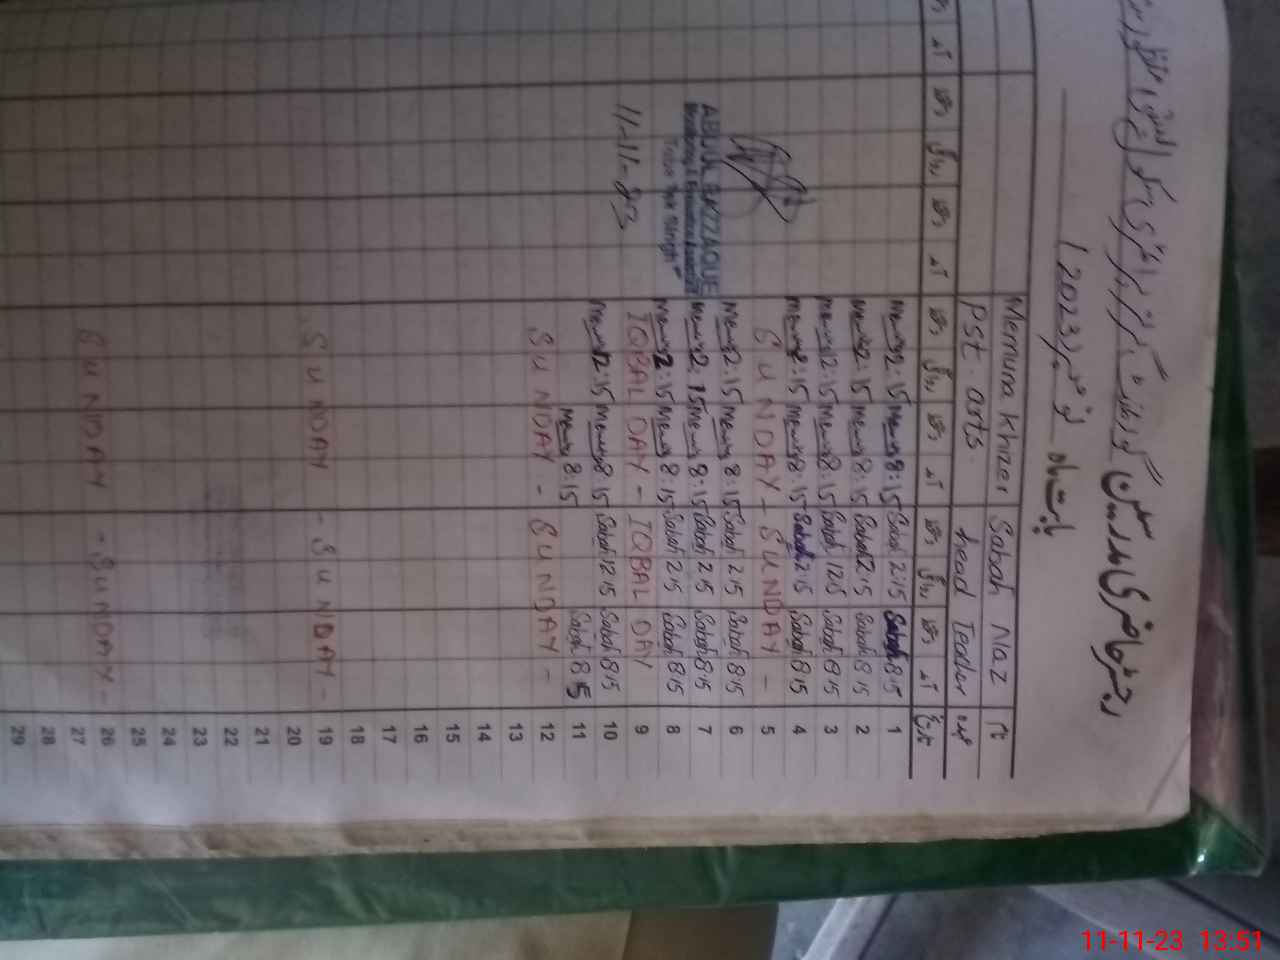 رجسٹر حاضری مدرسین گورنمنٹ گرلز پرائمری
بابت ماہ نومبر 2023
نام Sabah Naz Memuna Khizer
عہدہ head Teacher PST. arts.
تاریخ آمد دستخط روانگی دستخط آمد دستخط روانگی دستخط آمد دستخط روانگی دستخط آمد
1 Sabah 8:15 Sabah 2:15 Memuna 8:15 Memuna 2:15
2 Sabah 8:15 Sabah 2:15 Memuna 8:15 Memuna 2:15
3 Sabah 8:15 Sabah 12:15 Memuna 8:15 Memuna 12:15
4 Sabah 8:15 Sabah 2:15 Memuna 8:15 Memuna 2:15
5 SUNDAY - SUNDAY -
6 Sabah 8:15 Sabah 2:15 Memuna 8:15 Memuna 2:15
7 Sabah 8:15 Sabah 2:15 Memuna 8:15 Memuna 2:15
8 Sabah 8:15 Sabah 2:15 Memuna 8:15 Memuna 2:15
9 IQBAL DAY - IQBAL DAY
10 Sabah 8:15 Sabah 12:15 Memuna 8:15 Memuna 12:15
11 Sabah 8:15 Memuna 8:15
12 SUNDAY - SUNDAY -
13
14
15
16
17
18
19 SUNDAY - SUNDAY -
20
21
22
23
24
25
26 SUNDAY - SUNDAY -
27
28
29
ABDUL RAZZAQUE
11-11-23
11-11-23 13:51